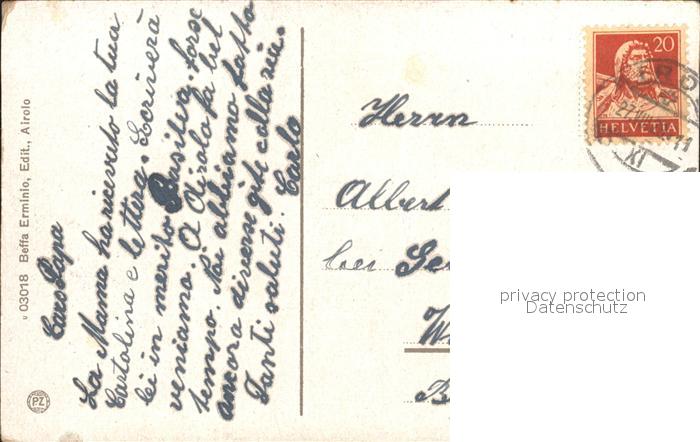 Caro Papa
La Mama ha ricevuto la tua
Cartolina e lettera. Scriverà
lei in merito. Basilea forse
veniamo. A Airolo fa bel
tempo. Noi abbiamo fatto
ancora diverse gite colla zia.
Tanti saluti. Carlo
v 03018 Beffa Erminio, Edit., Airolo
PZ
20
HELVETIA
XI
11
Herrn
Albert
bei
privacy protection
Datenschutz